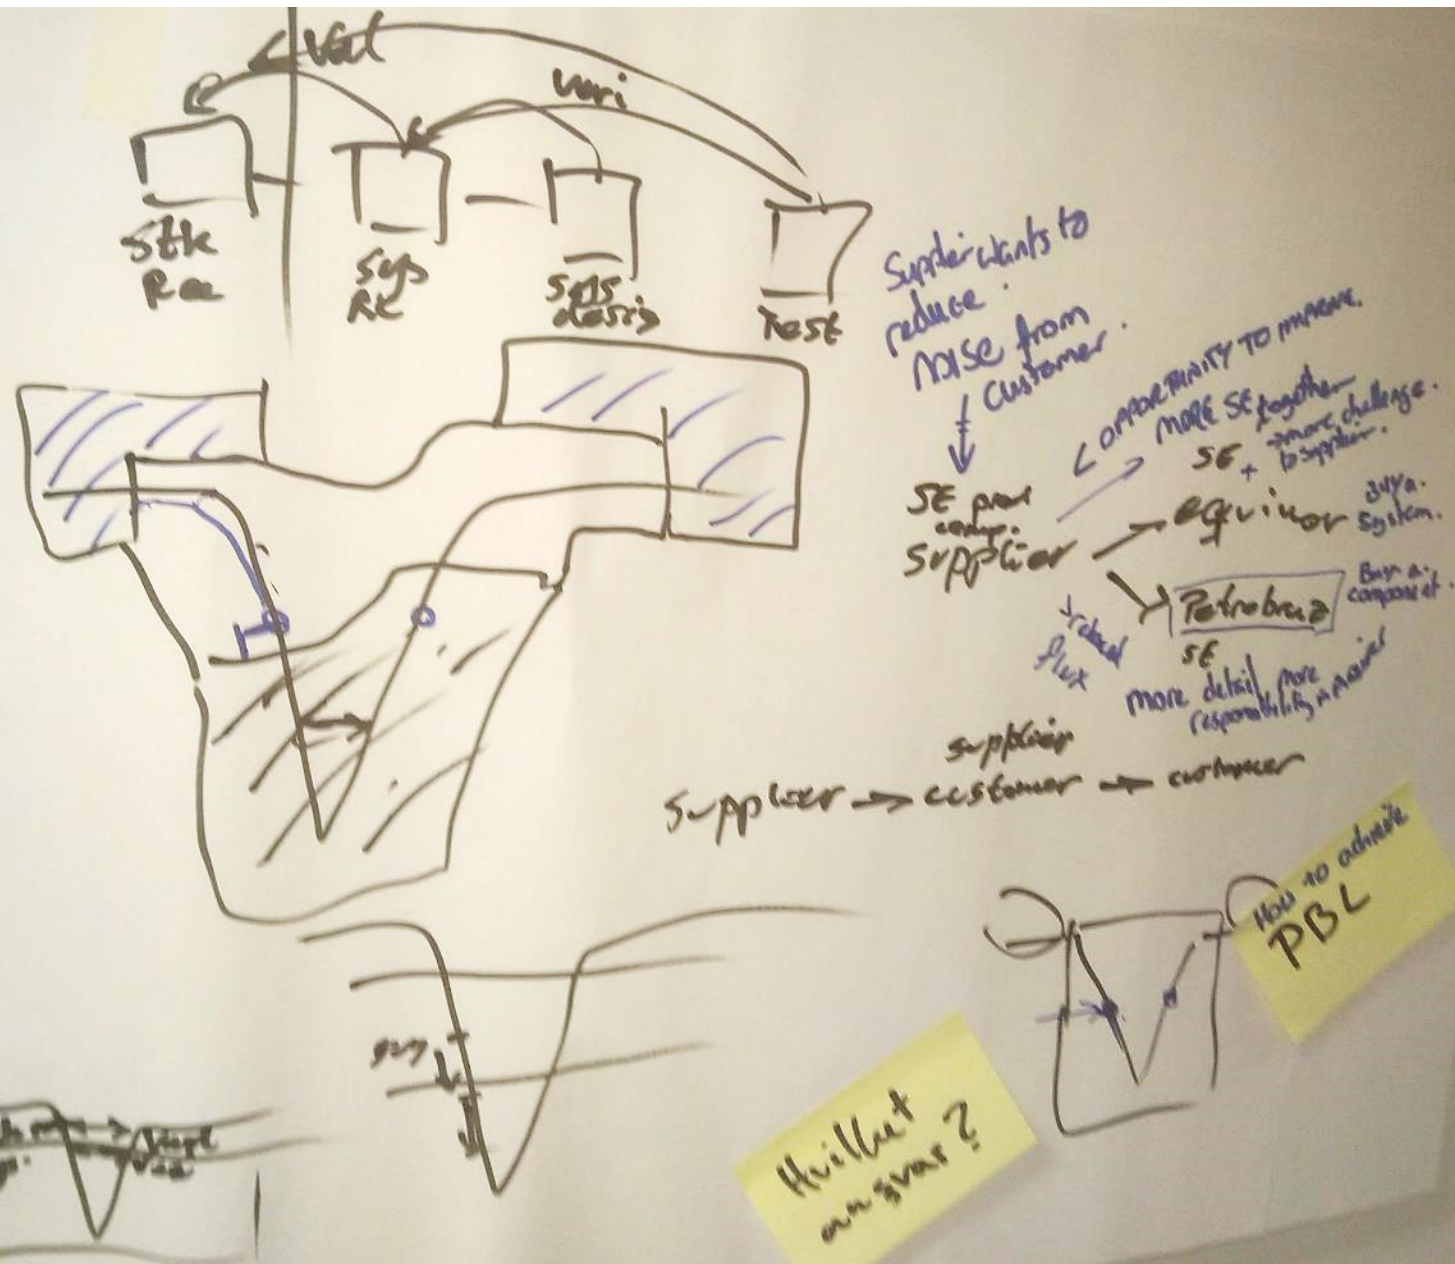 val
veri
Stk
Sys
Sys
Test
Supplier wants to
reduce
NOISE from
Customer.
OPPORTUNITY TO
MORE SE together
SE + more challenge.
to supplier.
SE
comp.
supplier
equinor
Buy a
System.
Petrobraz
Buy a
component.
SE
flux
more detail, more
responsibility
supplier
supplier → customer → customer
How to achieve
PBL
Hvilket
ansvar?